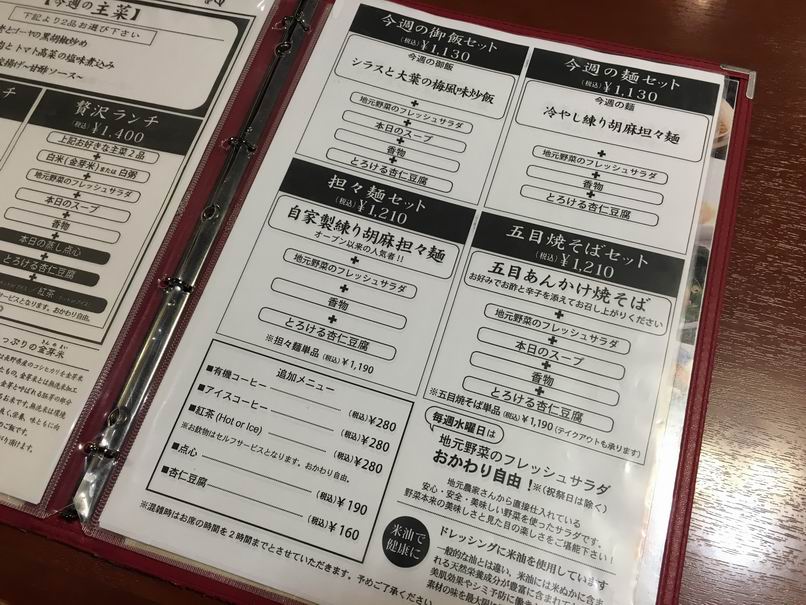 【今週の主菜】
下記より2品お選び下さい
とゴーヤの黒胡椒炒め
とトマト高菜の塩味煮込み
揚げ~甘酢ソース~
贅沢ランチ
(税込)¥1,400
上記お好きな主菜2品
+
白米(金芽米)または 白粥
+
地元野菜のフレッシュサラダ
+
本日のスープ
+
香物
+
本日の蒸し点心
+
とろける杏仁豆腐
+
紅茶
サービスとなります。おかわり自由。
っぷりの金芽米
今週の御飯セット
(税込)¥1,130
今週の御飯
シラスと大葉の梅風味炒飯
+
地元野菜のフレッシュサラダ
+
本日のスープ
+
香物
+
とろける杏仁豆腐
今週の麺セット
(税込)¥1,130
今週の麺
冷やし練り胡麻坦々麺
+
地元野菜のフレッシュサラダ
+
香物
+
とろける杏仁豆腐
担々麺セット
(税込)¥1,210
自家製練り胡麻担々麺
オープン以来の人気者!!
+
地元野菜のフレッシュサラダ
+
香物
+
とろける杏仁豆腐
※担々麺単品(税込)¥1,190
五目焼そばセット
(税込)¥1,210
五目あんかけ焼そば
お好みでお酢と辛子を添えてお召し上がりください
+
地元野菜のフレッシュサラダ
+
本日のスープ
+
香物
+
とろける杏仁豆腐
※五目焼そば単品(税込)¥1,190(テイクアウトも承ります)
追加メニュー
■有機コーヒー (税込)¥280
■アイスコーヒー (税込)¥280
■紅茶(Hot or Ice) (税込)¥280
※お飲物はセルフサービスとなります。おかわり自由。
■点心 (税込)¥190
■杏仁豆腐 (税込)¥160
※混雑時はお席の時間を2時間までとさせていただきます。予めご了承ください。
毎週水曜日は
地元野菜のフレッシュサラダ
おかわり自由!※(祝祭日は除く)
地元農家さんから直接仕入れている
安心・安全・美味しい野菜を使ったサラダです。
野菜本来の美味しさと見た目の楽しさをご堪能下さい!
米油で
健康に
ドレッシングに米油を使用しています
一般的な油とは違い、米油には米ぬかに含ま
れる天然栄養成分が豊富に含まれて
美肌効果やシミ予防に働き
素材の味を最大限